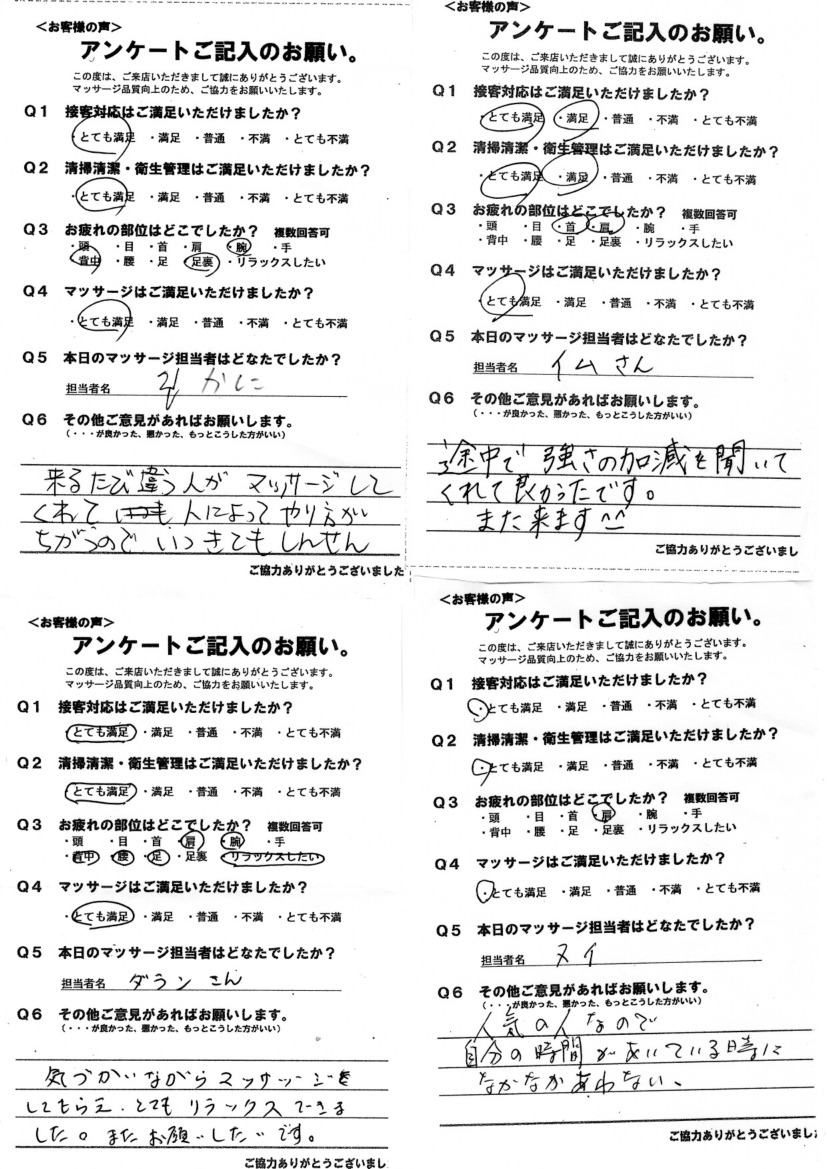 ＜お客様の声＞
アンケートご記入のお願い。
この度は、ご来店いただきまして誠にありがとうございます。
マッサージ品質向上のため、ご協力をお願いいたします。
Q1 接客対応はご満足いただけましたか？
・とても満足 ・満足 ・普通 ・不満 ・とても不満
Q2 清掃清潔・衛生管理はご満足いただけましたか？
・とても満足 ・満足 ・普通 ・不満 ・とても不満
Q3 お疲れの部位はどこでしたか？ 複数回答可
・頭 ・目 ・首 ・肩 ・腕 ・手
・背中 ・腰 ・足 ・足裏 ・リラックスしたい
Q4 マッサージはご満足いただけましたか？
・とても満足 ・満足 ・普通 ・不満 ・とても不満
Q5 本日のマッサージ担当者はどなたでしたか？
担当者名 かに
Q6 その他ご意見があればお願いします。
（・・・が良かった、悪かった、もっとこうした方がいい）
来るたび違う人がマッサージして
くれて 人によってやり方が
ちがうのでいつきてもしんせん
ご協力ありがとうございました
＜お客様の声＞
アンケートご記入のお願い。
この度は、ご来店いただきまして誠にありがとうございます。
マッサージ品質向上のため、ご協力をお願いいたします。
Q1 接客対応はご満足いただけましたか？
・とても満足 ・満足 ・普通 ・不満 ・とても不満
Q2 清掃清潔・衛生管理はご満足いただけましたか？
・とても満足 ・満足 ・普通 ・不満 ・とても不満
Q3 お疲れの部位はどこでしたか？ 複数回答可
・頭 ・目 ・首 ・肩 ・腕 ・手
・背中 ・腰 ・足 ・足裏 ・リラックスしたい
Q4 マッサージはご満足いただけましたか？
・とても満足 ・満足 ・普通 ・不満 ・とても不満
Q5 本日のマッサージ担当者はどなたでしたか？
担当者名 イムさん
Q6 その他ご意見があればお願いします。
（・・・が良かった、悪かった、もっとこうした方がいい）
途中で強さの加減を聞いて
くれて良かったです。
また来ます^^
ご協力ありがとうございまし
＜お客様の声＞
アンケートご記入のお願い。
この度は、ご来店いただきまして誠にありがとうございます。
マッサージ品質向上のため、ご協力をお願いいたします。
Q1 接客対応はご満足いただけましたか？
・とても満足 ・満足 ・普通 ・不満 ・とても不満
Q2 清掃清潔・衛生管理はご満足いただけましたか？
・とても満足 ・満足 ・普通 ・不満 ・とても不満
Q3 お疲れの部位はどこでしたか？ 複数回答可
・頭 ・目 ・首 ・肩 ・腕 ・手
・背中 ・腰 ・足 ・足裏 ・リラックスしたい
Q4 マッサージはご満足いただけましたか？
・とても満足 ・満足 ・普通 ・不満 ・とても不満
Q5 本日のマッサージ担当者はどなたでしたか？
担当者名 ダランさん
Q6 その他ご意見があればお願いします。
（・・・が良かった、悪かった、もっとこうした方がいい）
気づかいながらマッサージを
してもらえ、とてもリラックスできま
した。またお願いしたいです。
ご協力ありがとうございまし
＜お客様の声＞
アンケートご記入のお願い。
この度は、ご来店いただきまして誠にありがとうございます。
マッサージ品質向上のため、ご協力をお願いいたします。
Q1 接客対応はご満足いただけましたか？
・とても満足 ・満足 ・普通 ・不満 ・とても不満
Q2 清掃清潔・衛生管理はご満足いただけましたか？
・とても満足 ・満足 ・普通 ・不満 ・とても不満
Q3 お疲れの部位はどこでしたか？ 複数回答可
・頭 ・目 ・首 ・肩 ・腕 ・手
・背中 ・腰 ・足 ・足裏 ・リラックスしたい
Q4 マッサージはご満足いただけましたか？
・とても満足 ・満足 ・普通 ・不満 ・とても不満
Q5 本日のマッサージ担当者はどなたでしたか？
担当者名 ヌイ
Q6 その他ご意見があればお願いします。
（・・・が良かった、悪かった、もっとこうした方がいい）
人気の人なので
自分の時間があいている時に
なかなかあわない。
ご協力ありがとうございまし